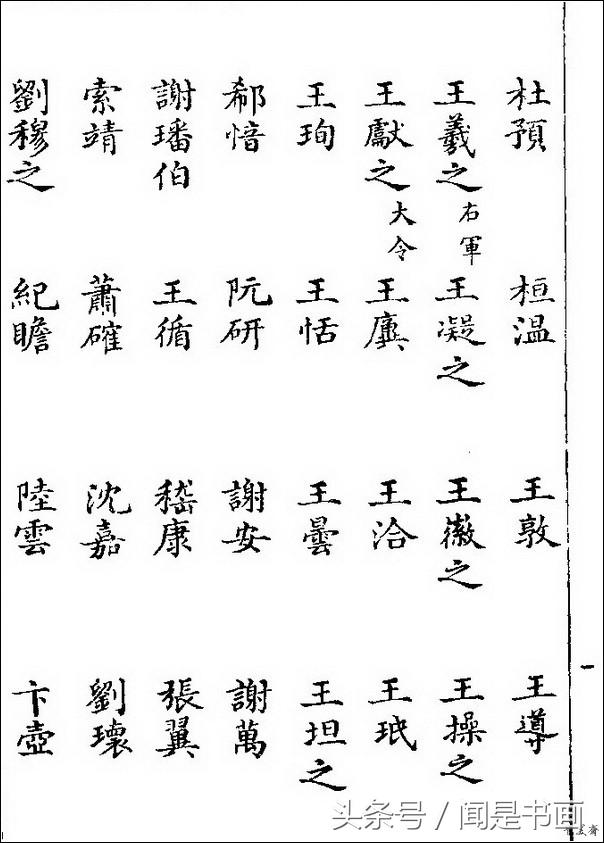 杜預 桓温 王敦 王導
王羲之 右軍 王凝之 王徽之 王操之
王獻之 大令 王廙 王洽 王珉
王珣 王恬 王曇 王坦之
郗愔 阮研 謝安 謝萬
謝璠伯 王循 嵇康 張翼
索靖 蕭確 沈嘉 劉瓌
劉穆之 紀瞻 陸雲 卞壺
头条号 / 闻是书画